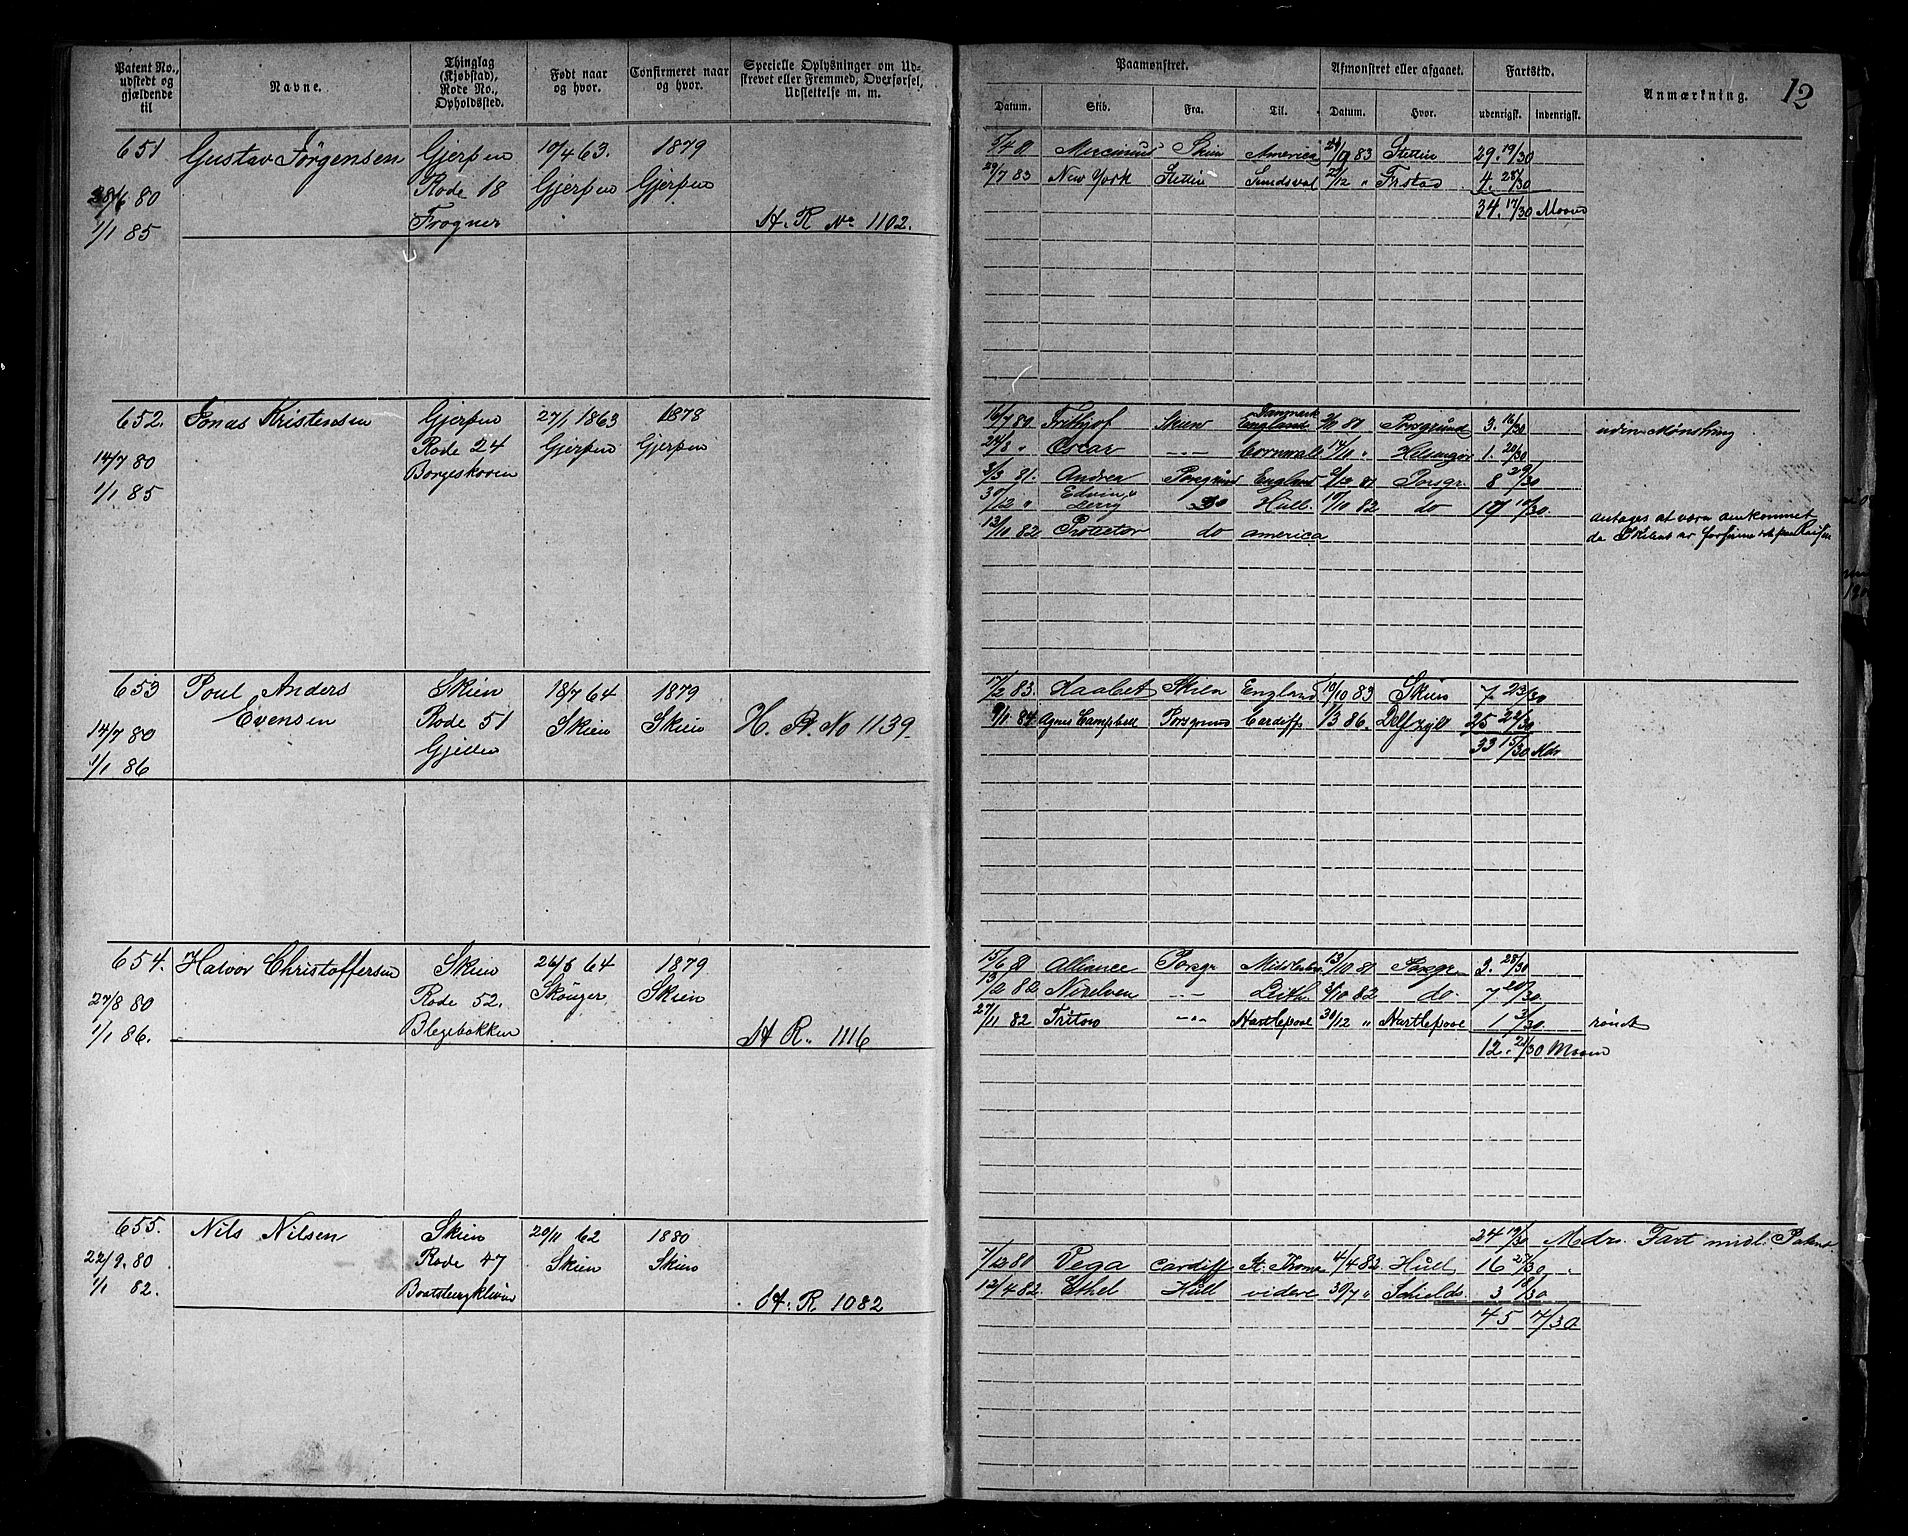 Patent No., udstedt og gjældende til
Navne.
Thinglag (Kjøbstad), Rode No., Opholdssted.
Født naar og hvor.
Confirmeret naar og hvor.
Specielle Oplysninger om Udskrevet eller Fremmed, Overførsel, Udslettelse m. m.
Paamønstret.
Afmønstret eller afgaaet.
Fartstid.
Anmærkning.
12
Datum.
Skib.
Fra.
Til.
Datum.
Hvor.
udenrigsk.
indenrigsk.
651 Gustav Jørgensen Gjerpen 17/4 63. 1879
28/6 80 Rode 18 Gjerpen Gjerpen
1/1 85 Frogner H. R No 1102.
Mercurius Skien America 83 Stettin 29. 19/30
29/7 83 New York Stettin Sundsval /12 " 4. 28/30
34. 17/30
652. Jonas Kristensen Gjerpen 27/1 1863 1878
14/7 80 Rode 24 Gjerpen Gjerpen
1/1 85 Borgeskoven
16/7 80 Frithjof Skien Danmark England Porsgrund 3. 16/30 uden Mønstring
24/8 " Oscar -"- Cornwall 17/10 " Helsingør 1. 2/30
3/3 81. Andrea Porsgrund England 12 81 Porsgr 8 29/30
30/12 " Edwin Do Hull. 17/10 82 do 17/30
13/10 82 Protector do america antages at være omkommet
653 Poul Anders Evensen Skien 18/7 64 1879
14/7 80 Rode 51 Skien Skien H. R. No 1139.
1/1 86
17/2 83. Haabet Skien England 19/10 83 Skien 7 23/30
9/1 84 Agnes Campbell Porsgrund Cardiff 1/3 86. Delfzyl 25 22/30
33 15/30 Mdr
654. Halvor Christoffersen Skien 64 1879
27/8 80 Rode 52. Skouger Skien
1/1 86. Blegebakken H R. 1116
15/6 81 Alliance Porsgr 13/10 81 Porsgr 3. 28/30
82 Leith 3/10 82 do 7 20/30
27/11 82 Triton -"- Hartlepool 30/12 " Hartlepool 1 3/30 rømt
12. 21/30
655. Nils Nilsen Skien 20/11 62 1880
22/9. 80 Rode 47 Skien Skien
1/1 82. H. R 1082
24 19/30 Mdrs. Fart midl. Patent
7/12 80 Vega Cardiff 4/4 82 Hull 16 27/30
12/4 82 Ethel Hull videre 30/7 " Schields 3 18/30
45 4/30